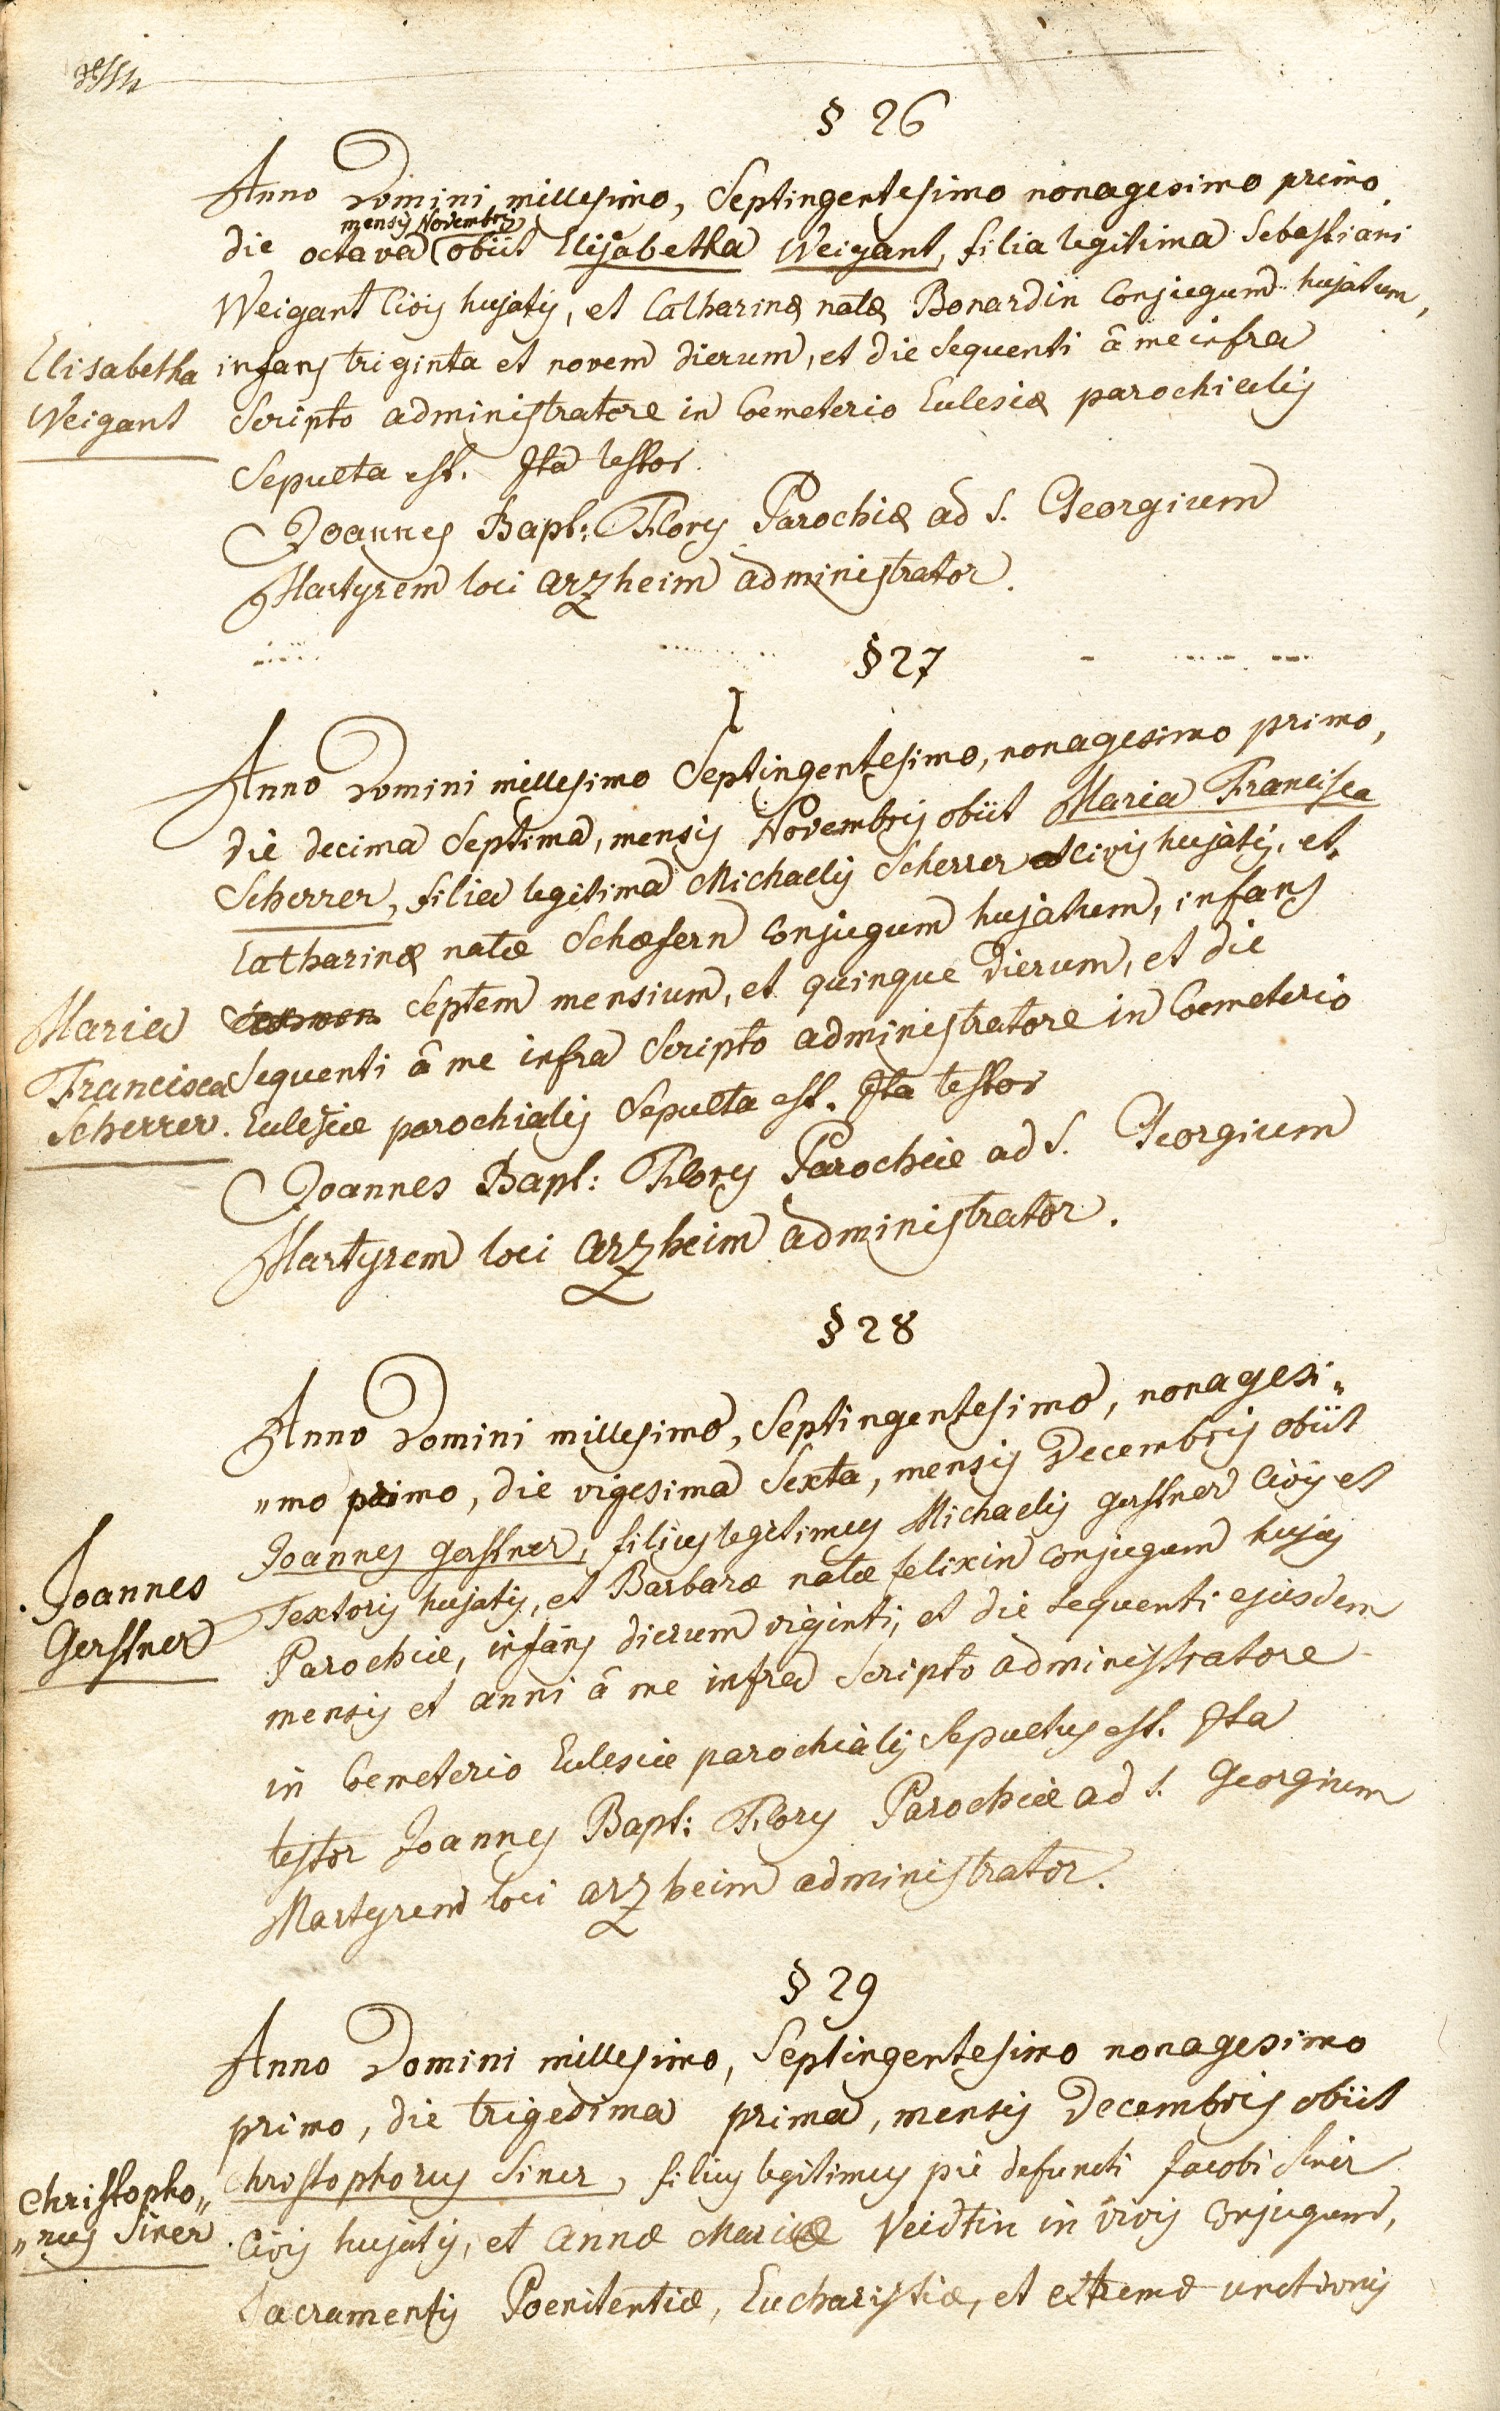 § 26
Anno Domini millesimo, Septingentesimo nonagesimo primo
mensis Novembris
die octava obiit Elisabetha Weigant, filia legitima Sebastiani
Weigant Civis hujatis, et Catharinæ natæ Bonardin Conjugum hujatum,
Elisabetha
Weigant
infans triginta et novem dierum, et die Sequenti â me infra
Scripto administratore in Coemeterio Eclesiæ parochialis
Sepulta est. Ita testor.
Joannes Bapt: Flory Parochiæ ad S. Georgium
Martyrem loci arzheim administrator.
§ 27
Anno Domini millesimo Septingentesimo, nonagesimo primo,
die decima Septima, mensis Novembris obiit Maria Francisca
Scherrer, filia legitima Michaelis Scherrer Civis hujatis, et
Catharinæ natæ Schæfern Conjugum hujatum, infans
Maria
Francisca
Scherrer.
Septem mensium, et quinque dierum, et die
Sequenti â me infra Scripto administratore in Coemeterio
Eclesiæ parochialis Sepulta est. Ita testor
Joannes Bapt: Flory Parochiæ ad S. Georgium
Martyrem loci arzheim administrator.
§ 28
Anno Domini millesimo, Septingentesimo, nonagesi„
„mo primo, die vigesima Sexta, mensis Decembris obiit
Joannes gerstner, filius legitimus Michaelis gerstner Civis et
Joannes
Gerstner
Textoris hujatis, et Barbaræ natæ felixin Conjugum hujus
Parochiæ, infans dierum viginti, et die sequenti ejusdem
mensis et anni â me infra Scripto administratore
in Coemeterio Eclesiæ parochialis Sepultus est. Ita
testor Joannes Bapt: Flory Parochiæ ad S. Georgium
Martyrem loci arzheim administrator.
§ 29
Anno Domini millesimo, Septingentesimo nonagesimo
primo, die trigesima prima, mensis Decembris obiit
Christopho„
„rus Siner.
Christophorus Siner, filius legitimus pie defuncti Jacobi Siner
Civis hujatis, et Annæ Mariæ Veidtin in vivis Conjugum,
Sacramentis Poenitentiæ, Eucharistiæ, et extremæ unctionis